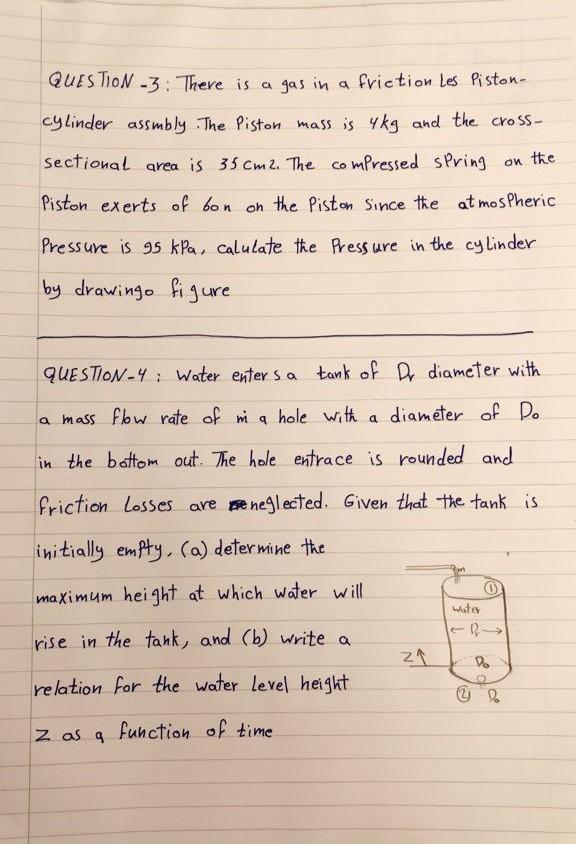 QUESTION -3: There is a gas in a friction Les Piston-
cylinder assmbly. The Piston mass is 4kg and the cross-
sectional area is 35 cm2. The compressed spring on the
Piston exerts of 60n on the Piston since the atmospheric
Pressure is 95 kPa, calulate the Pressure in the cylinder
by drawingo figure
QUESTION-4: Water enters a tank of DT diameter with
a mass flow rate of ṁ a hole with a diameter of Do
in the bottom out. The hole entrace is rounded and
friction Losses are neglected. Given that the tank is
initially empty, (a) determine the
maximum height at which water will
rise in the tank, and (b) write a
relation for the water level height
z as a function of time
①
water
← DT →
Z↑
Do
② Do